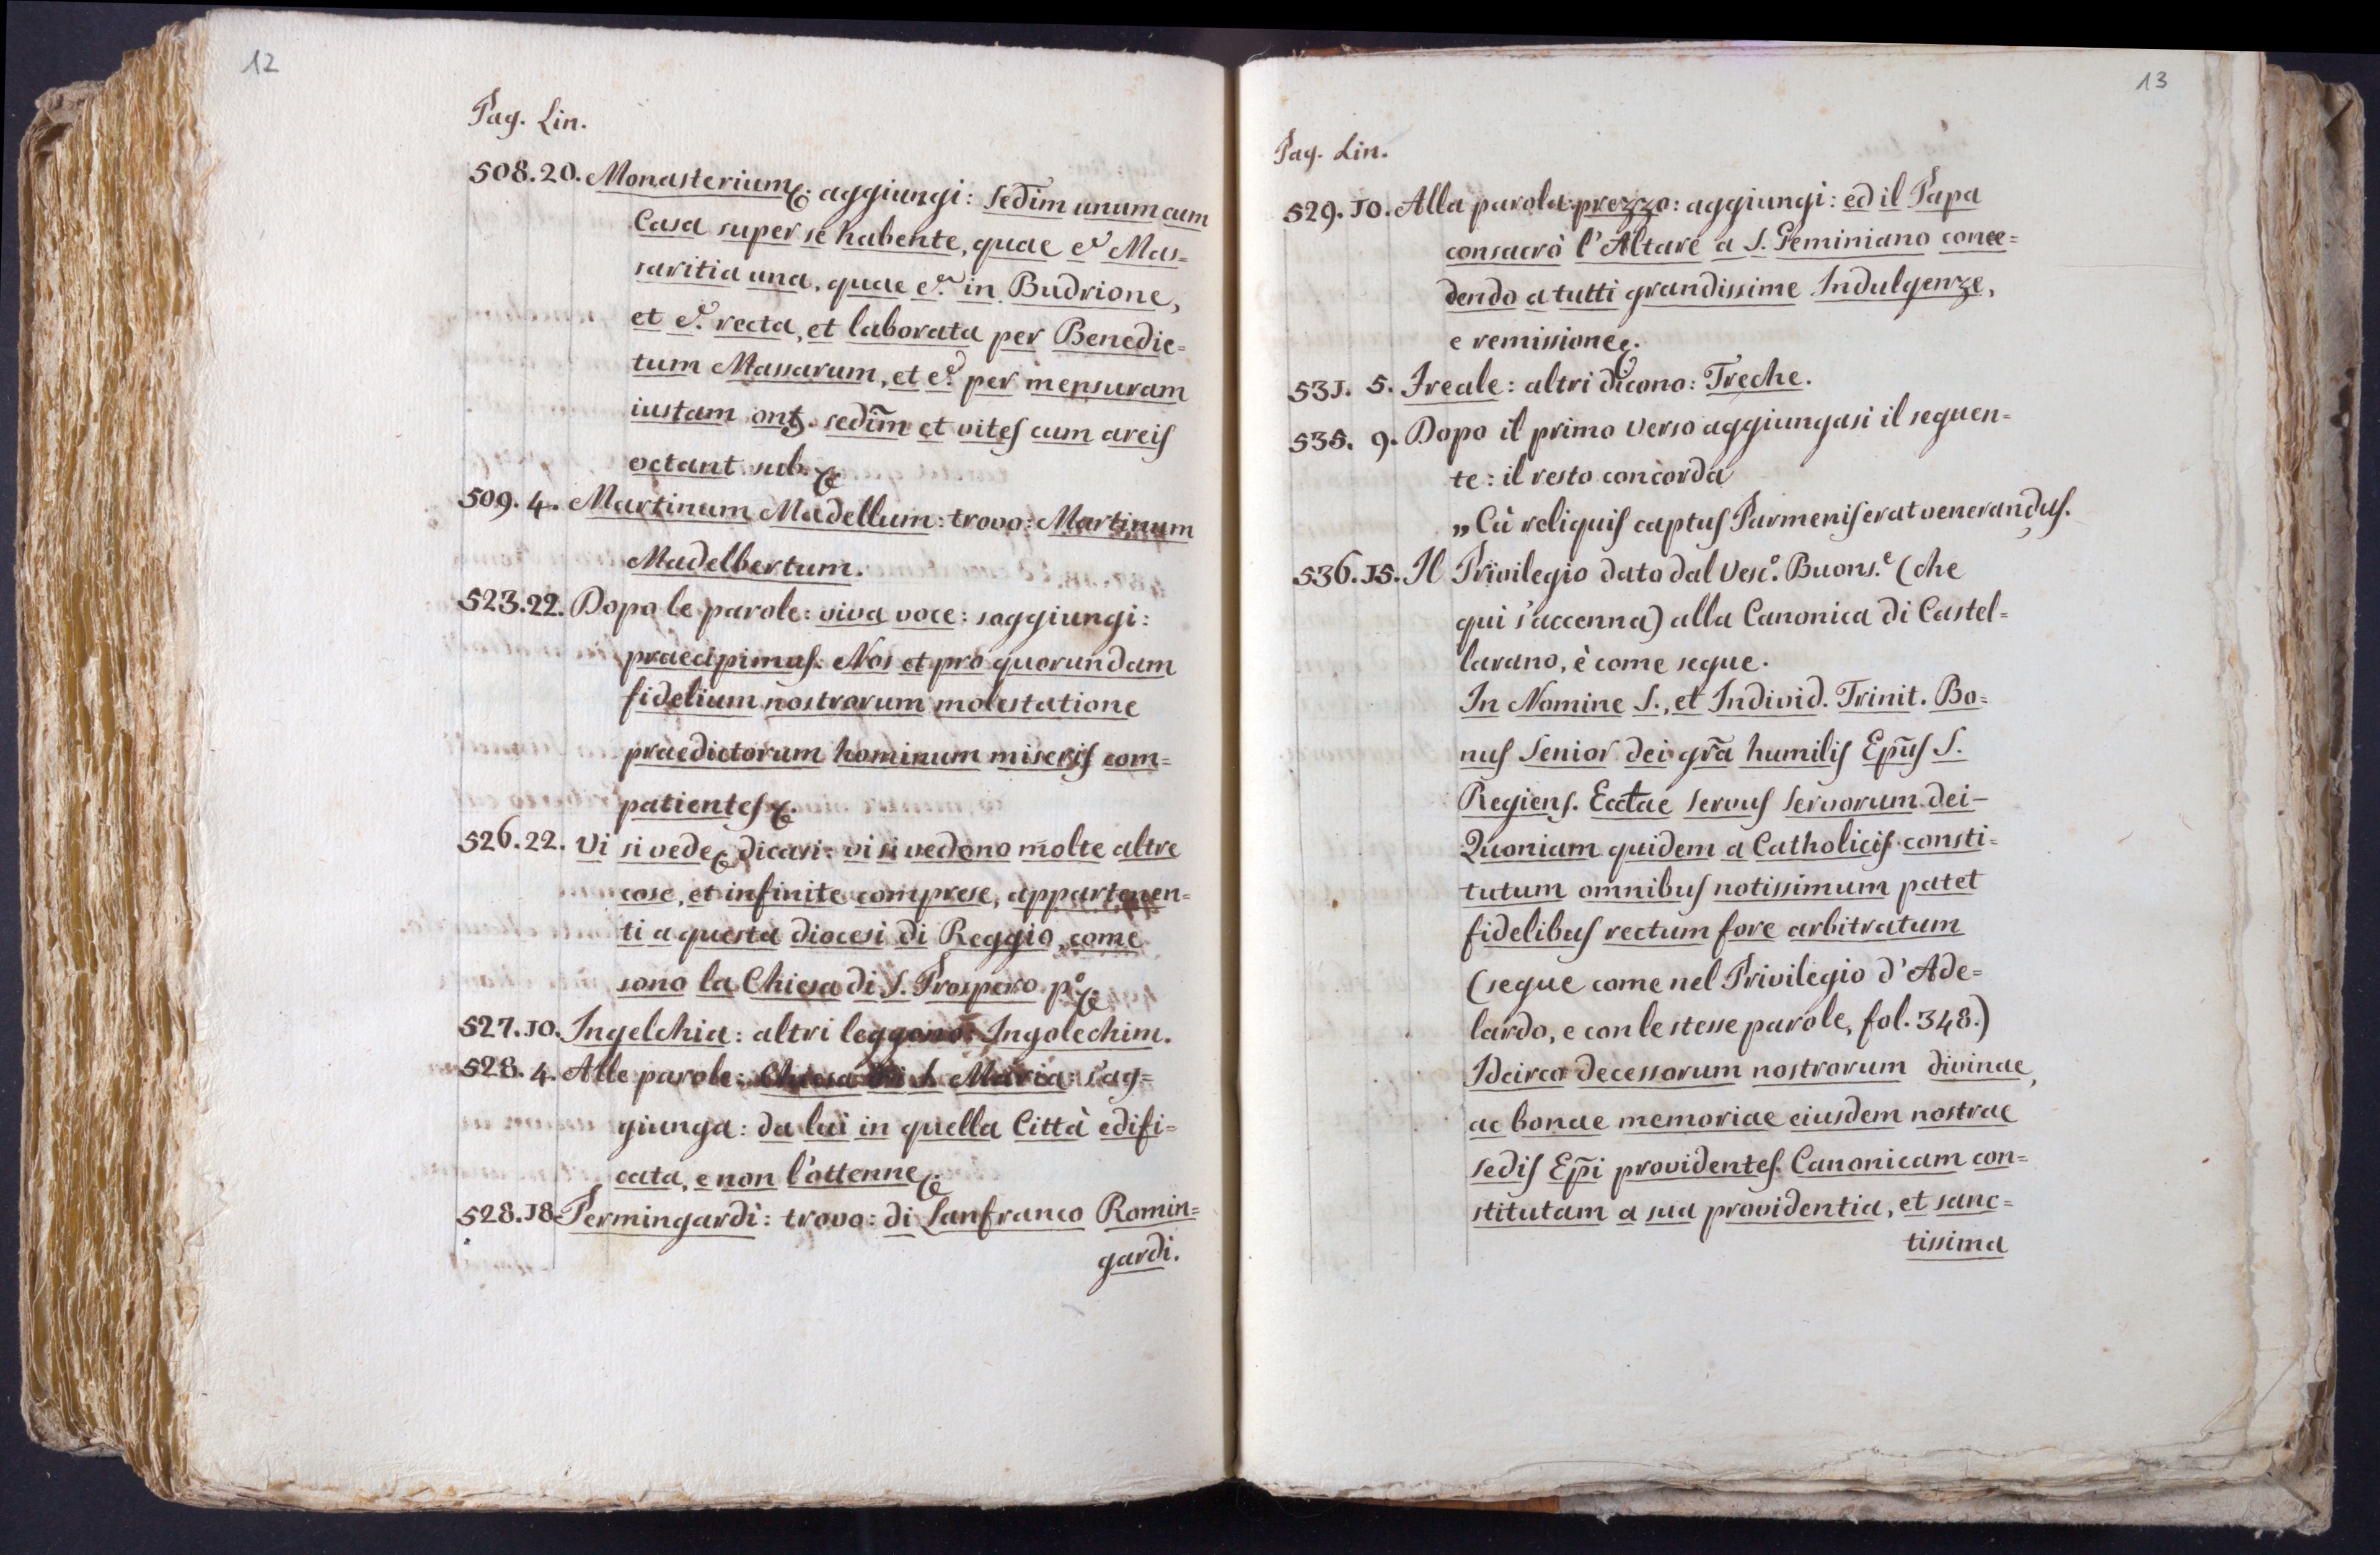 12
Pag. Lin.
508.20. Monasterium &. aggiungi: sedim unum cum
Casa super se habente, quae e.ᵈ Mas=
saritia una, quae e.ᵈ in Budrione,
et e.ᵈ recta, et laborata per Benedic=
tum Massarum, et e.ᵈ per mensuram
iustam ont. sedim̃ et vites cum areis
octant sub. &
509. 4. Martinum Madellum: trovo: Martinum
Madelbertum.
523.22. Dopo le parole: viva voce: soggiungi:
praecipimus. Nos et pro quorundam
fidelium nostrorum molestatione
praedictorum hominum miseris com=
patientes &.
526.22. Vi si vede & dicasi: vi si vedono molte altre
cose, et infinite comprese, appartenen=
ti a questa diocesi di Reggio, come
sono la Chiesa di S. Prospero p.º &.
527.10. Ingelchia: altri leggono: Ingolechim.
528. 4. Alle parole: Chiesa di S. Maria: s'ag=
giunga: da lui in quella Città edifi=
cata, e non l'ottenne &.
528.18. Permingardi: trovo: di Lanfranco Romin=
gardi.
13
Pag. Lin.
529. 10. Alla parola prezzo: aggiungi: ed il Papa
consacrò l'Altare a S. Geminiano conce=
dendo a tutti grandissime Indulgenze,
e remissione &.
531. 5. Ireale: altri dicono: Treche.
535. 9. Dopo il primo verso aggiungasi il seguen=
te: il resto concorda
„Cũ reliquis captus Parmenis erat venerandus.
536.15. Il Privilegio dato dal Vesc.º Buons.ᵉ (che
qui s'accenna) alla Canonica di Castel=
larano, è come segue.
In Nomine S., et Individ. Trinit. Bo=
nus Senior dei grã humilis Epũs S.
Regiens. Ecctae servus servorum dei–
Quoniam quidem a Catholicis consti=
tutum omnibus notissimum patet
fidelibus rectum fore arbitratum
(segue come nel Privilegio d'Ade=
lardo, e con le stesse parole, fol. 348.)
Idcirco decessorum nostrorum divinae,
ac bonae memoriae eiusdem nostrae
sedis Epĩ providentes. Canonicam con=
stitutam a sua providentia, et sanc=
tissima